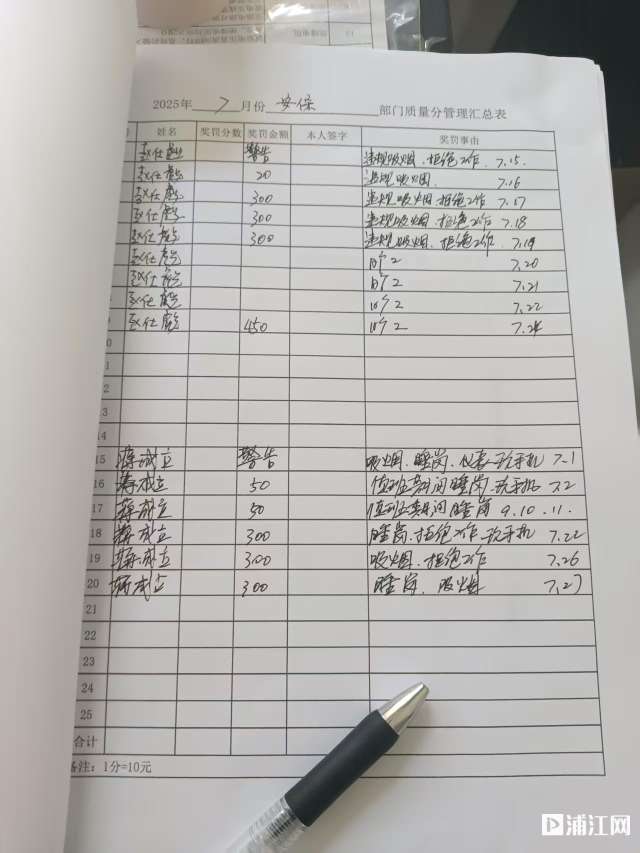 2025年 7 月份 安保 部门质量分管理汇总表
姓名 奖罚分数 奖罚金额 本人签字 奖罚事由
赵仕彪 警告 违规吸烟.拒绝工作. 7.15.
赵仕彪 20 违规吸烟. 7.16
赵仕彪 300 违规吸烟.拒绝工作 7.17
赵仕彪 300 违规吸烟.拒绝工作 7.18
赵仕彪 300 违规吸烟.拒绝工作 7.19
赵仕彪 旷工 7.20
赵仕彪 旷工 7.21
赵仕彪 旷工 7.22
赵仕彪 450 旷工 7.24
0
11
12
13
14
15 蒋成立 警告 吸烟、睡岗、仪表、玩手机 7.1
16 蒋成立 50 值班期间睡岗.玩手机 7.2
17 蒋成立 50 值班期间睡岗 9.10.11.
18 蒋成立 300 睡岗.拒绝工作.玩手机 7.22
19 蒋成立 300 吸烟.拒绝工作 7.26
20 蒋成立 300 睡岗、吸烟 7.27
21
22
23
24
25
合计
备注：1分=10元
浦江网